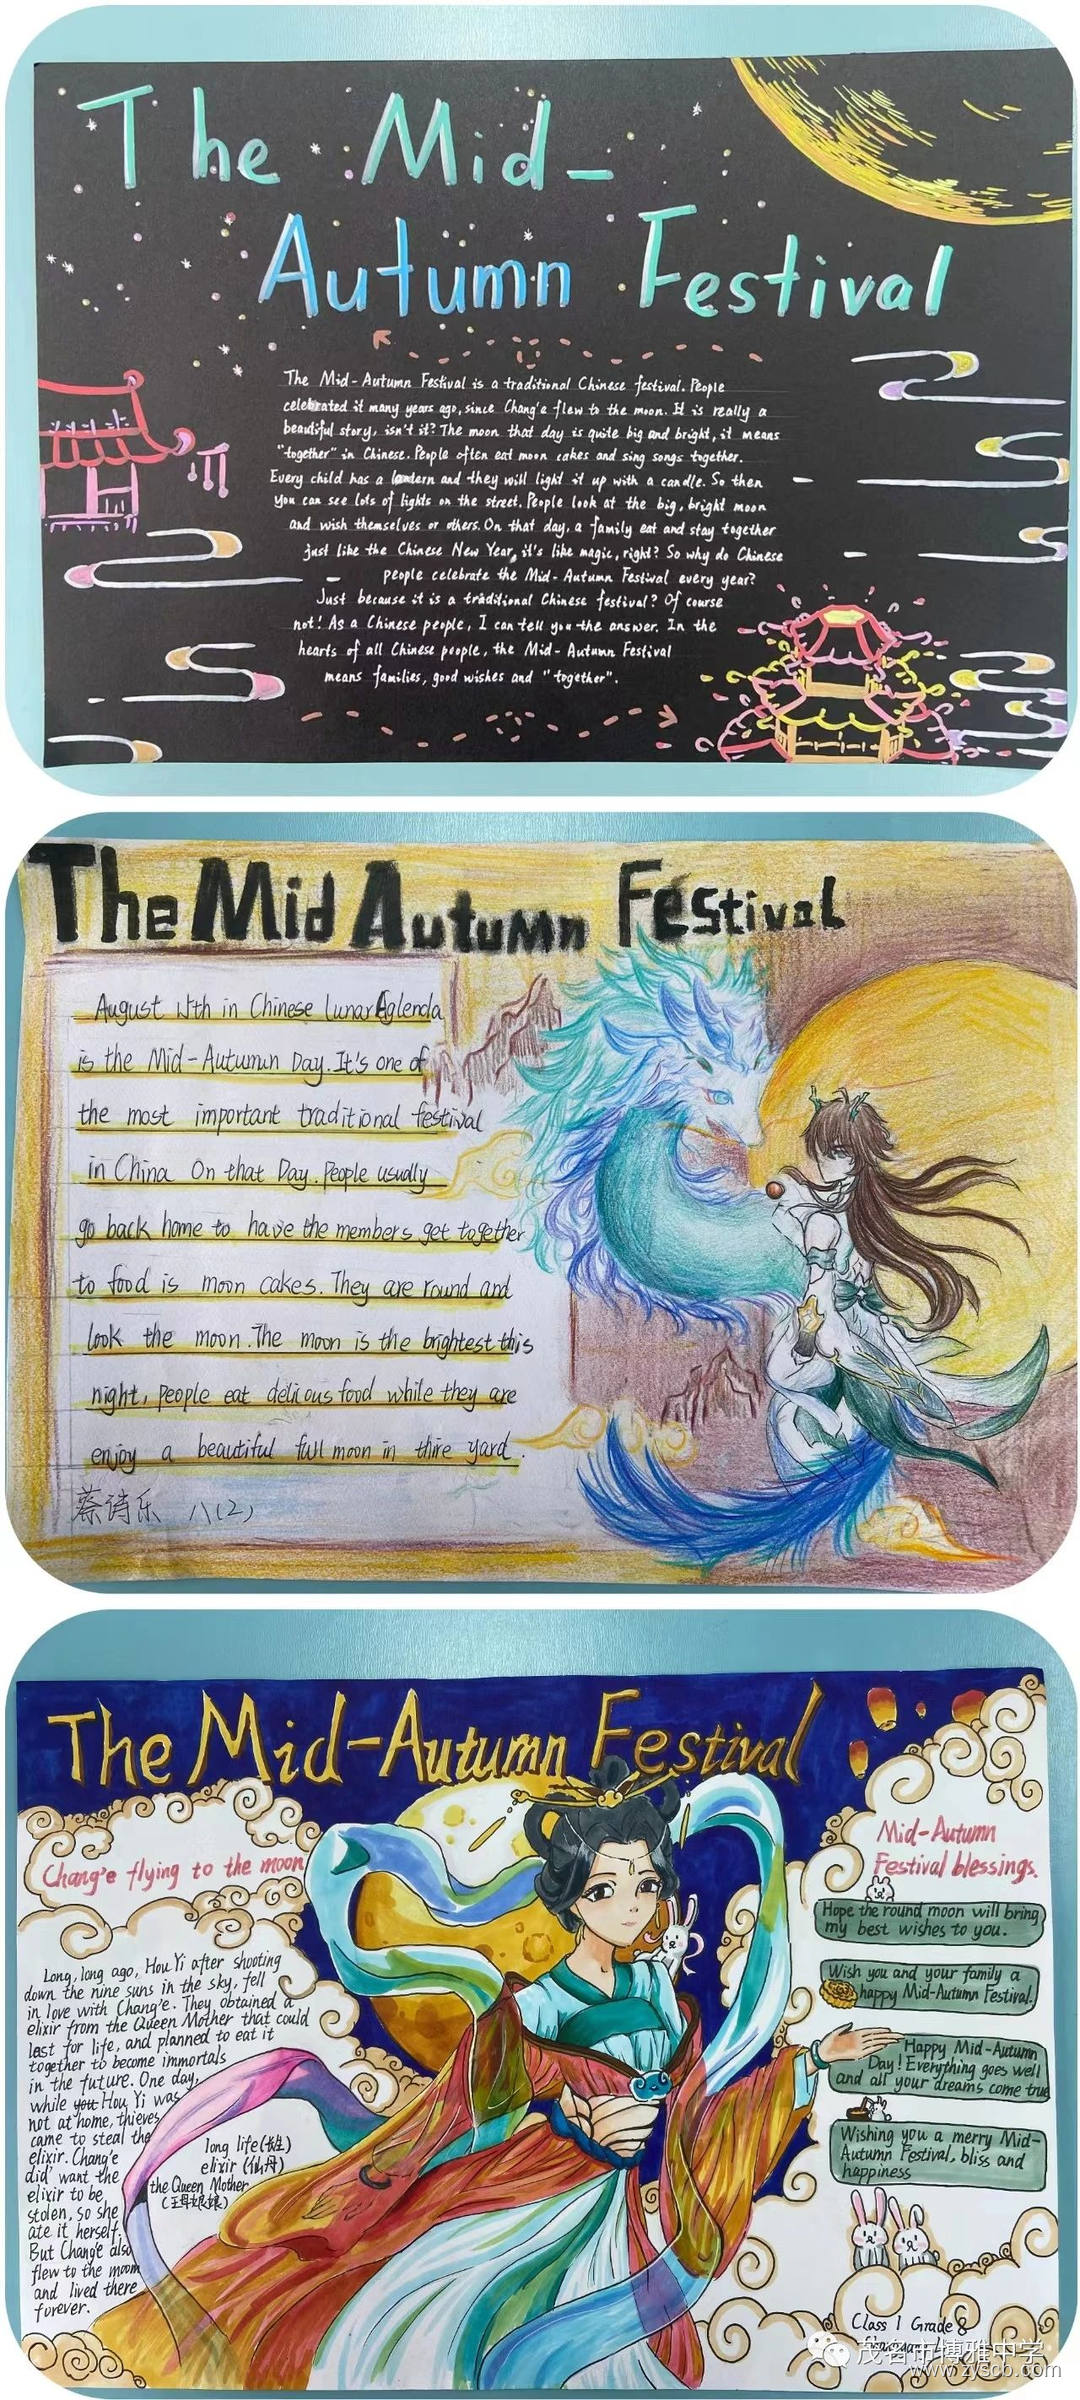 The Mid-
Autumn Festival
The Mid-Autumn Festival is a traditional Chinese festival. People
celebrated it many years ago, since Chang'e flew to the moon. It is really a
beautiful story, isn't it? The moon that day is quite big and bright, it means
"together" in Chinese. People often eat moon cakes and sing songs together.
Every child has a lantern and they will light it up with a candle. So then
you can see lots of lights on the street. People look at the big, bright moon
and wish themselves or others. On that day, a family eat and stay together
just like the Chinese New Year, it's like magic, right? So why do Chinese
people celebrate the Mid-Autumn Festival every year?
Just because it is a traditional Chinese festival? Of course
not! As a Chinese people, I can tell you the answer. In the
hearts of all Chinese people, the Mid-Autumn Festival
means families, good wishes and "together".
The Mid Autumn Festival
August 15th in Chinese lunar Calenda
is the Mid-Autumun Day. It's one of
the most important traditional festival
in China On that Day. People usually
go back home to have the members get together
to food is moon cakes. They are round and
look the moon. The moon is the brightest this
night, people eat delicious food while they are
enjoy a beautiful full moon in thire yard.
蔡诗乐 八(2)
The Mid-Autumn Festival
Chang'e flying to the moon
Long, long ago, Hou Yi after shooting
down the nine suns in the sky, fell
in love with Chang'e. They obtained a
elixir from the Queen Mother that could
last for life, and planned to eat it
together to become immortals
in the future. One day,
while Hou Yi was
not at home, thieves
came to steal the
elixir. Chang'e
did' want the
elixir to be
stolen, so she
ate it herself.
But Chang'e also
flew to the moon
and lived there
forever.
long life
elixir (仙丹)
the Queen Mother
(王母娘娘)
Mid-Autumn
Festival blessings.
Hope the round moon will bring
my best wishes to you.
Wish you and your family a
happy Mid-Autumn Festival.
Happy Mid-Autumn
Day! Everything goes well
and all your dreams come true
Wishing you a merry Mid-
Autumn Festival, bliss and
happiness
Class 1 Grade 8
茂名市博雅中学
www.zyscb.com